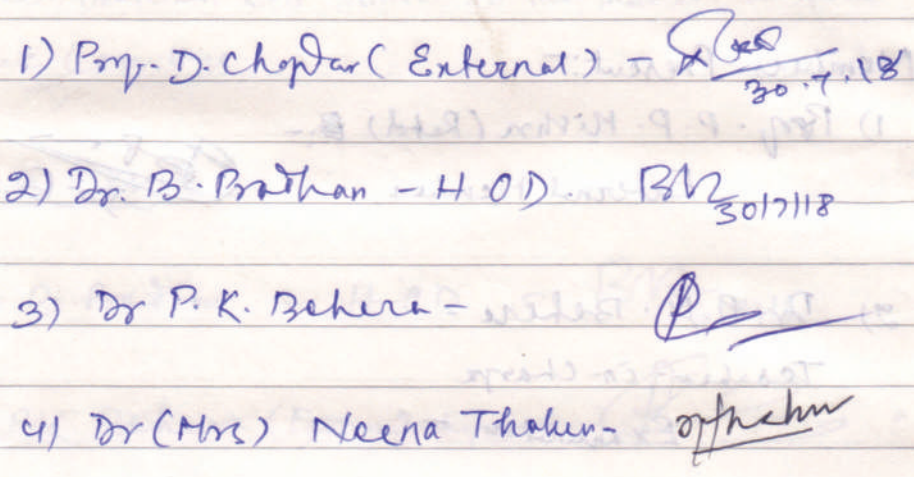 1) Prof. D. Choptar (External) - 30.7.18
2) Dr. B. Pradhan - H O D. 30/7/18
3) Dr P. K. Behera -
4) Dr (Mrs) Neena Thakur -